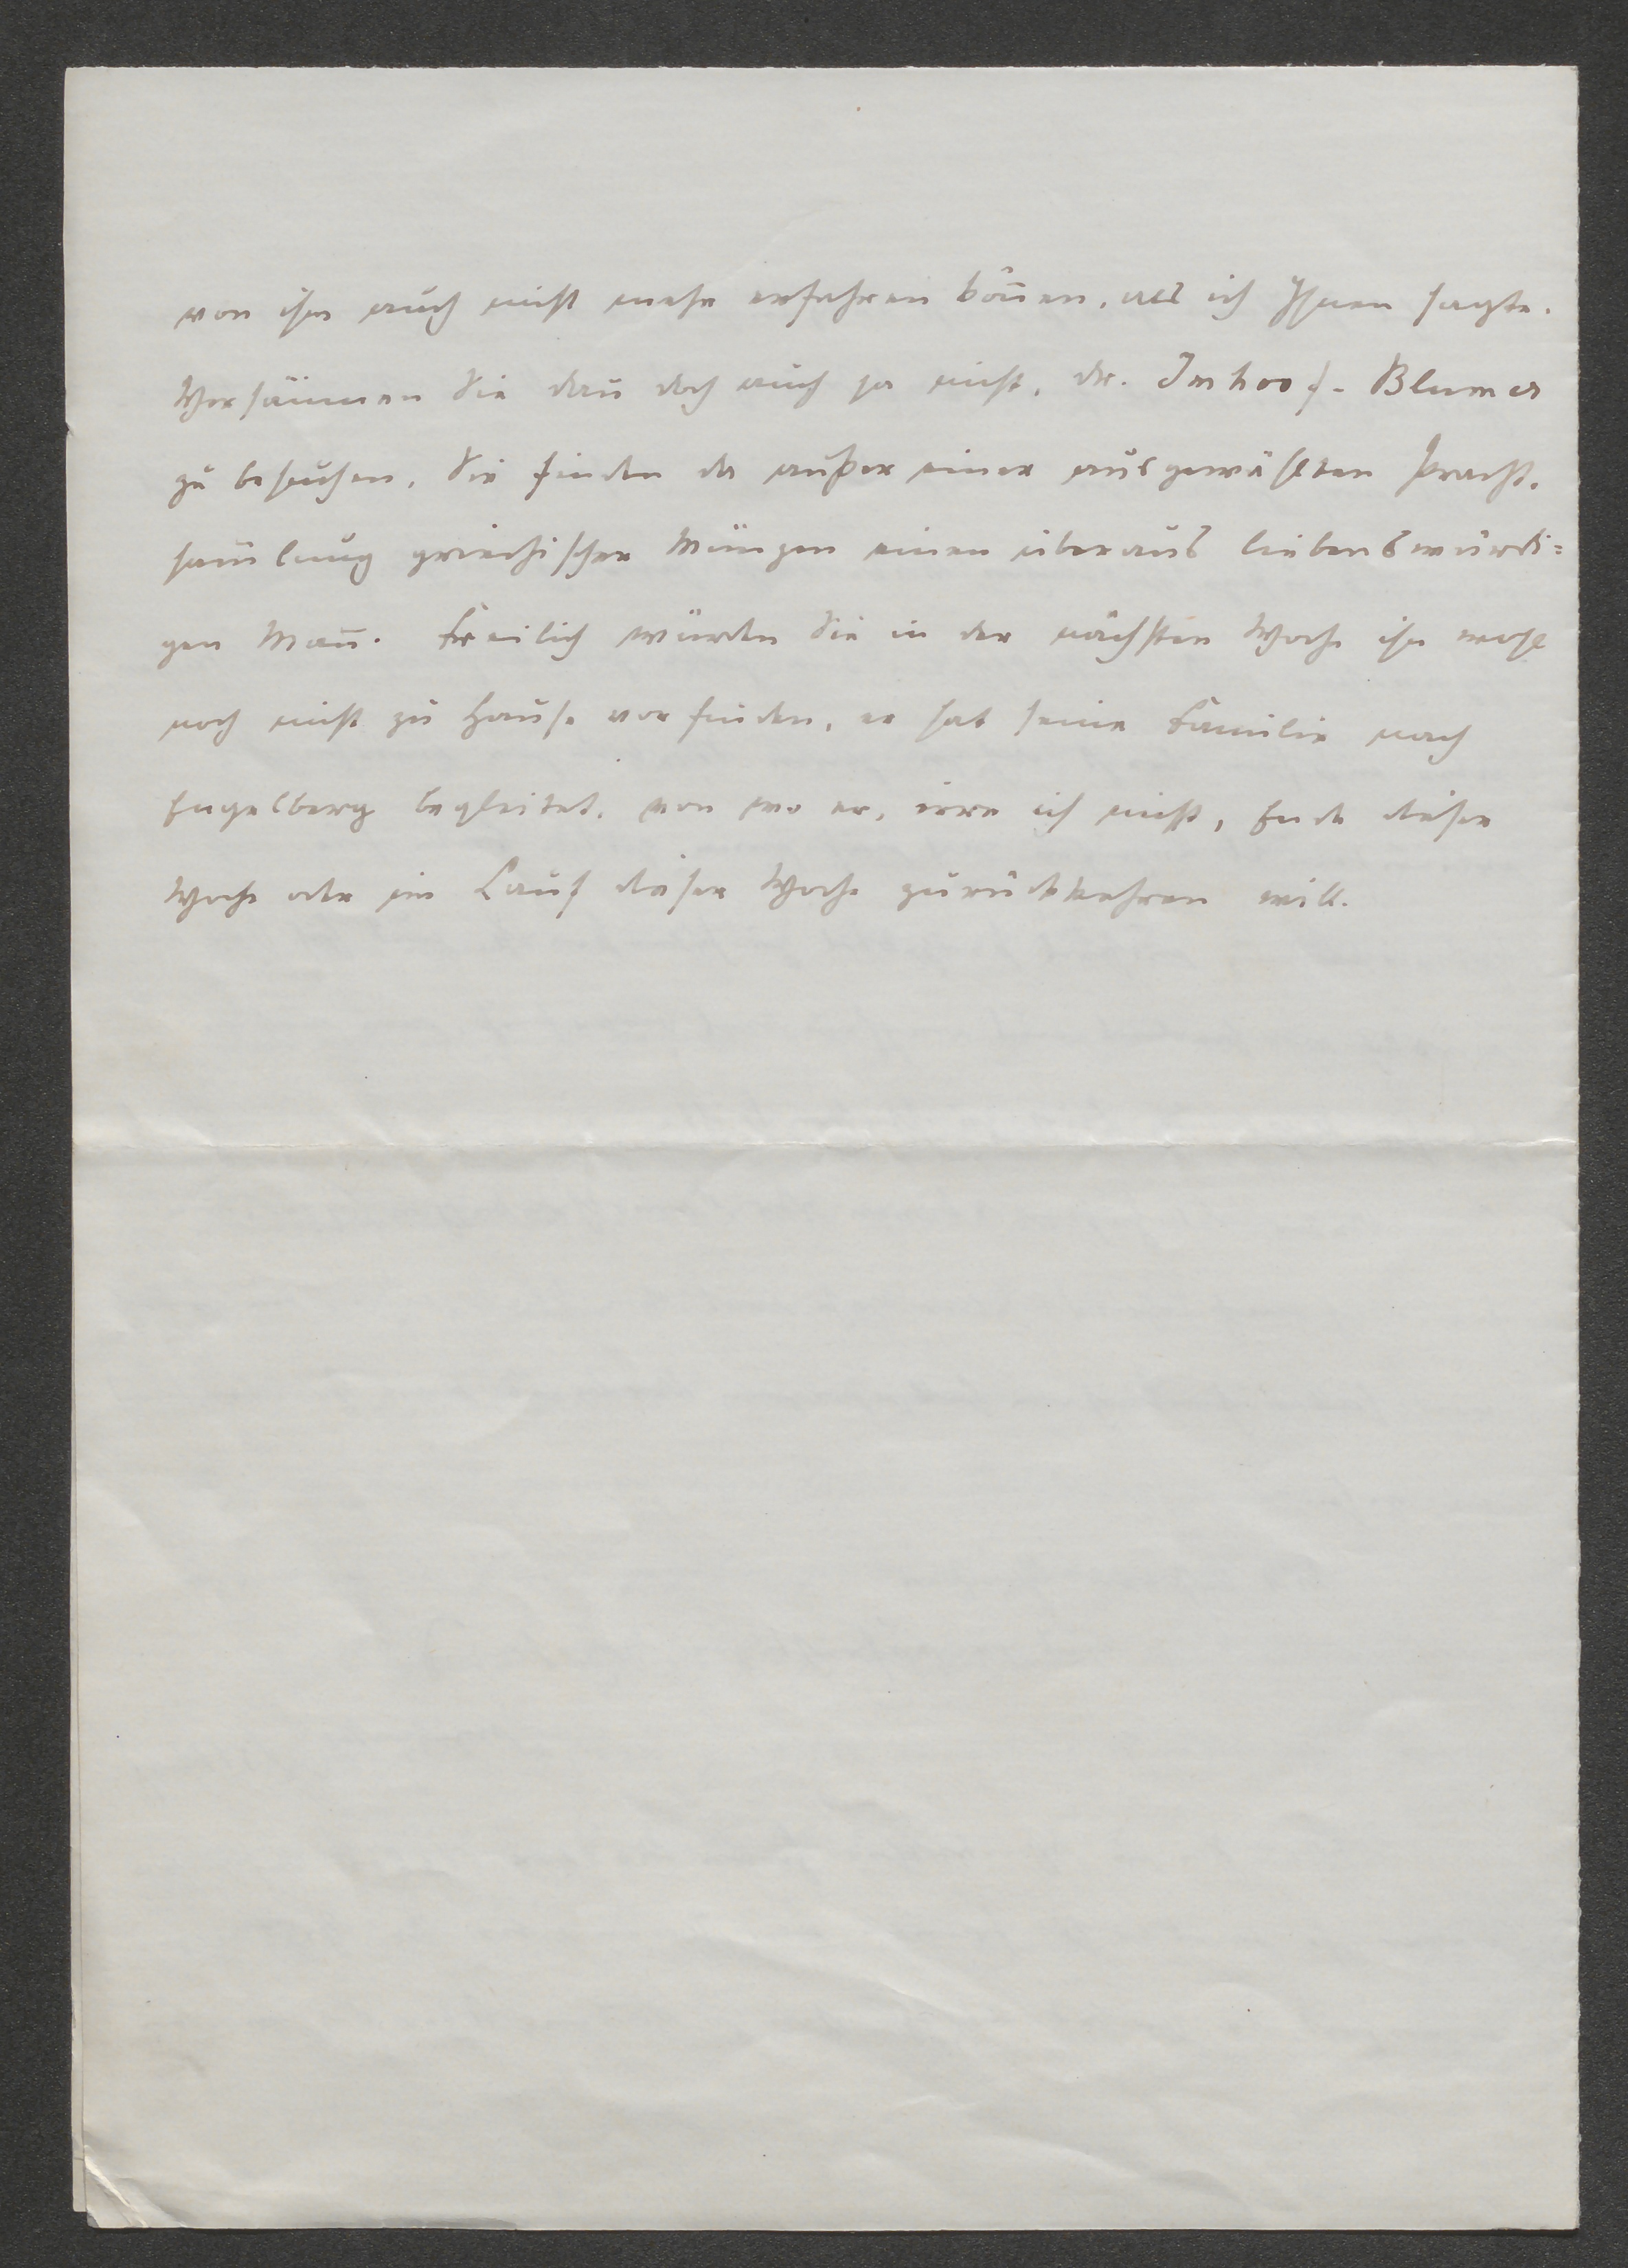 von ihm auch nicht mehr erfahren kön̄en, als ich Ihnen sagte.
Versäumen Sie dan̄ doch auch ja nicht, Dr. Imhoof-Blumer
zu besuchen. Sie finden da außer einer ausgewählten Pracht-
sam̄lung griechischer Münzen einen überaus liebenswürdi=
gen Man̄. Freilich würden Sie in der nächsten Woche ihn wohl
noch nicht zu Hause vorfinden, er hat seine Familie nach
Engelberg begleitet, von wo er, irre ich nicht, Ende dieser
Woche oder im Lauf dieser Woche zurückkehren will.